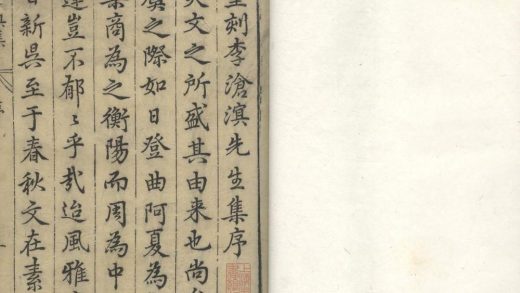 刻李滄溟先生集序
文之所盛其由来也尚
虞之際如日登曲阿夏為
商為之衡陽而周為中
豈不郁〻乎哉迨風雅
新呉至于春秋文在素